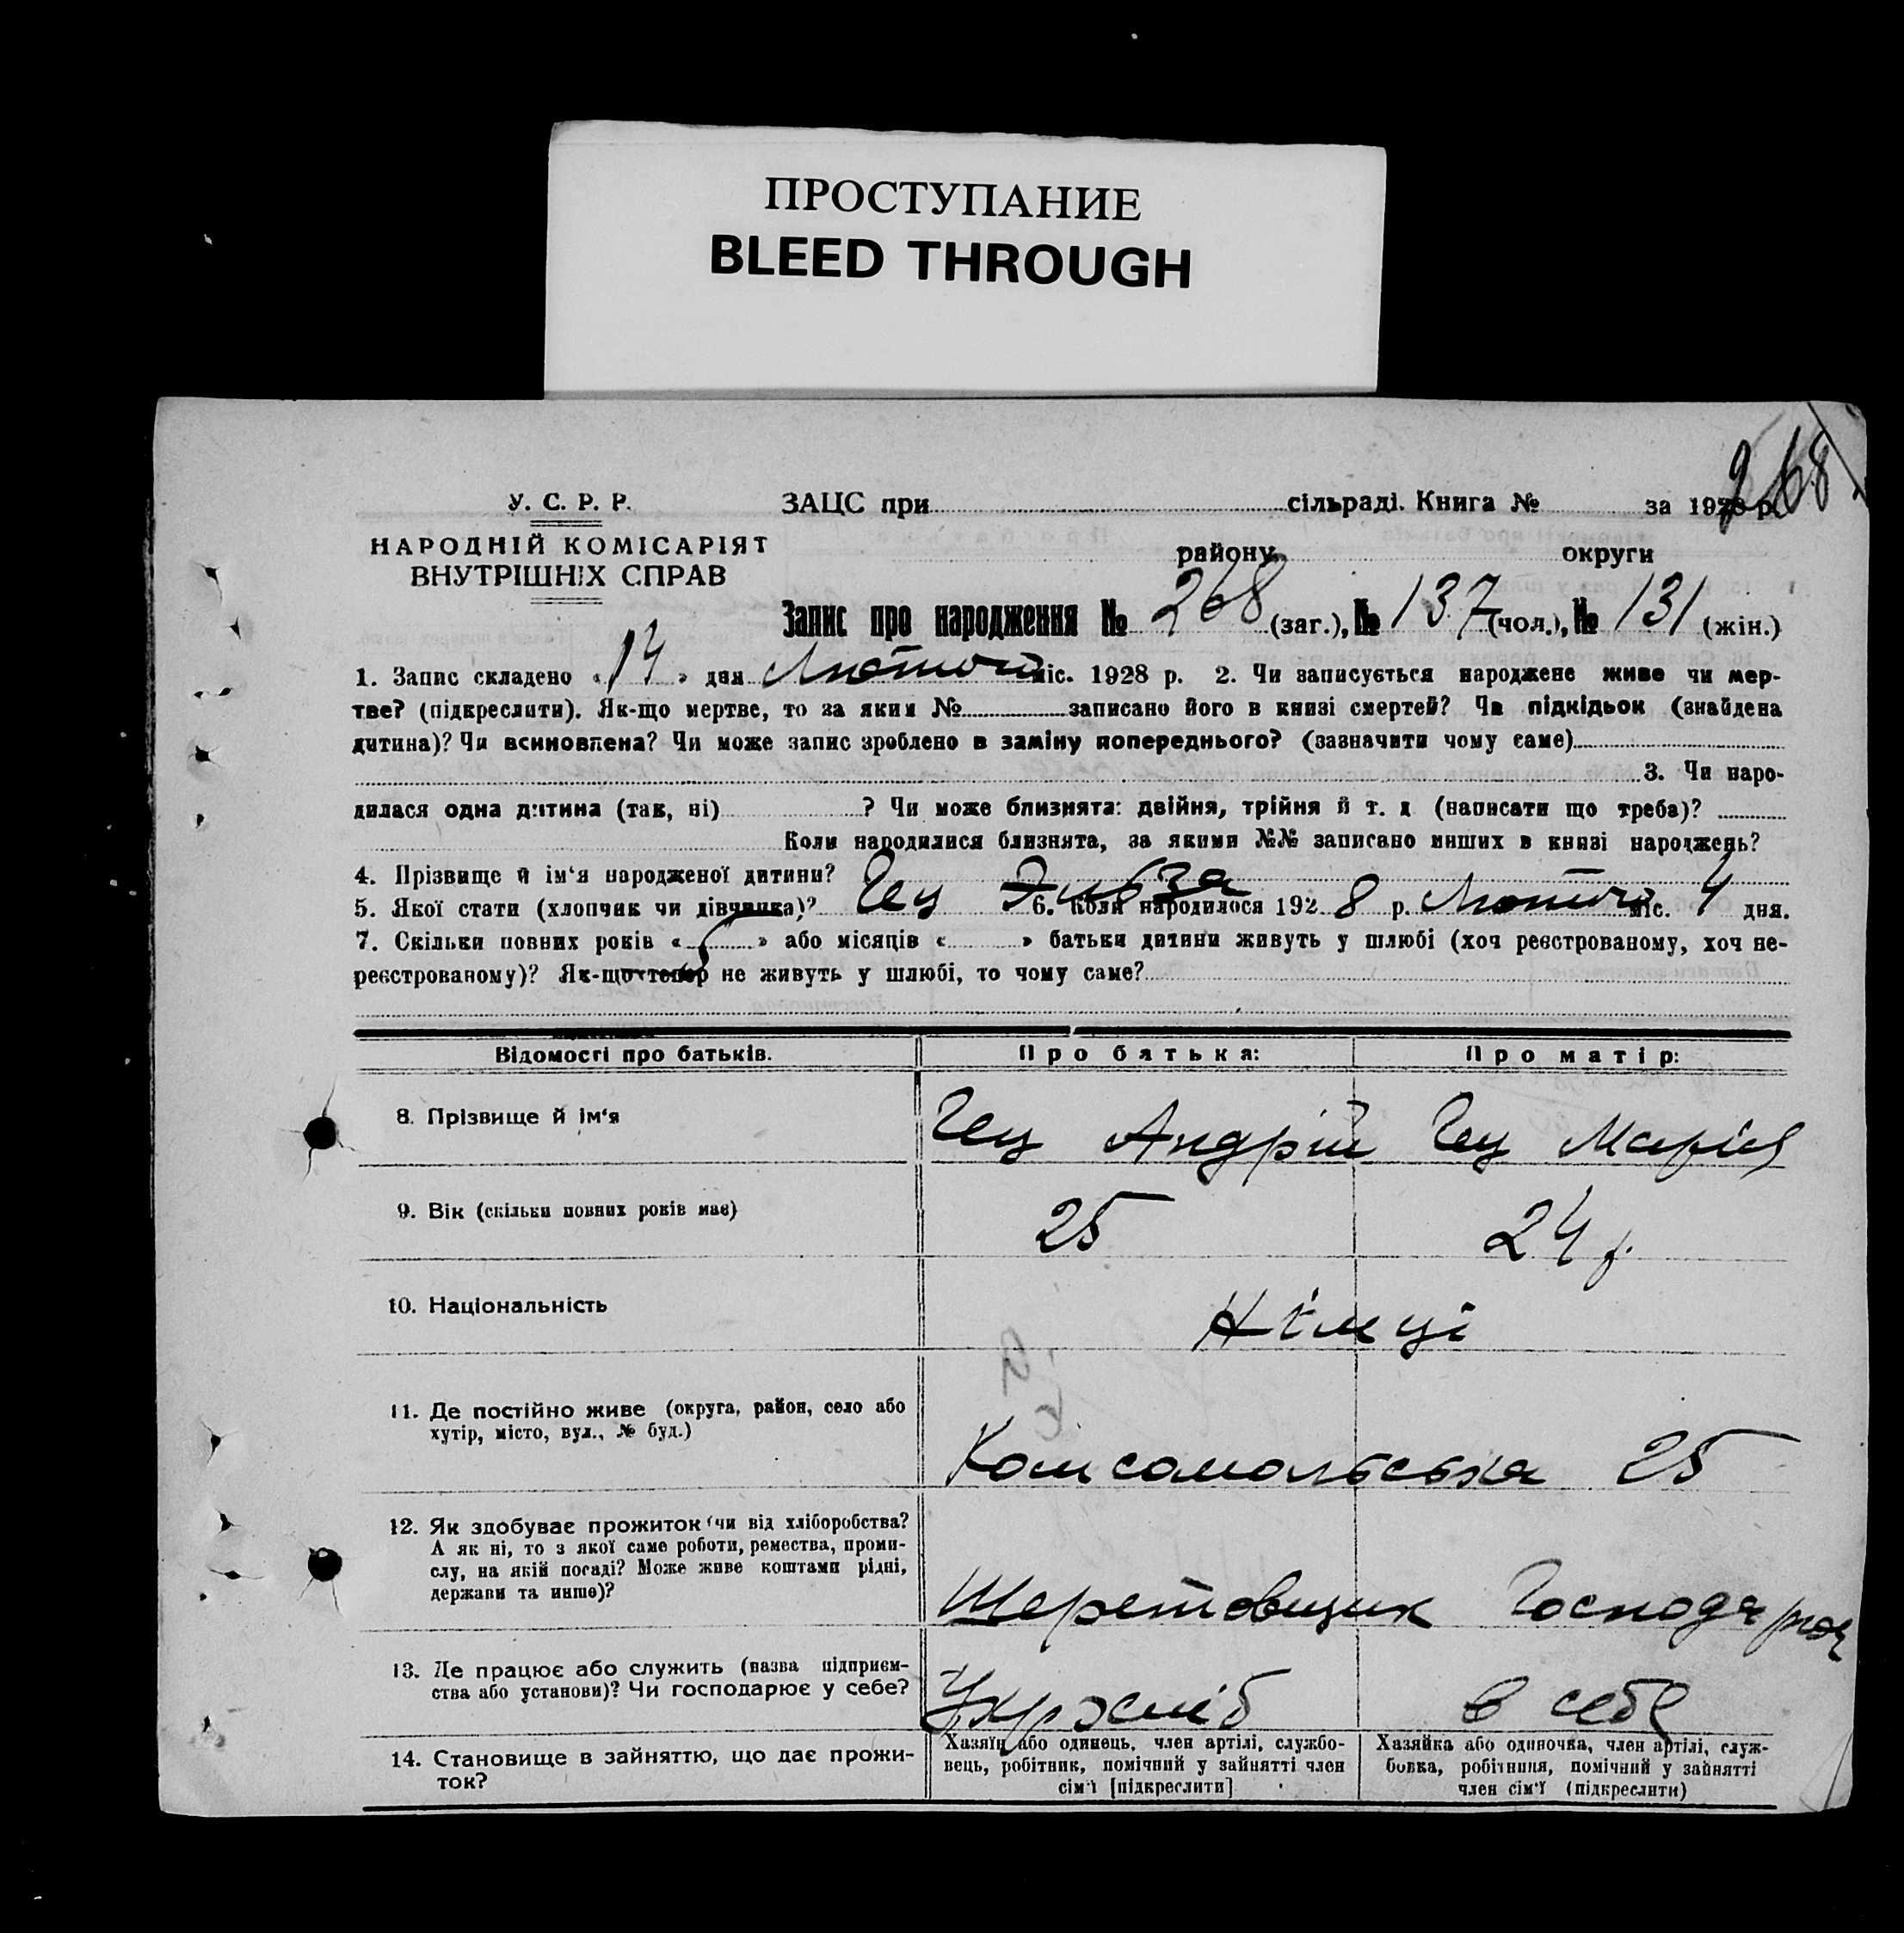 ПРОСТУПАНИЕ
BLEED THROUGH
268
У. С. Р. Р. ЗАЦС при сільраді. Книга № за 1928 р.
НАРОДНІЙ КОМІСАРІЯТ
району округи
ВНУТРІШНІХ СПРАВ
Запис про народження № 268 (заг.), № 137 (чол.), № 131 (жін.)
1. Запис складено « 14 » дня Лютого міс. 1928 р. 2. Чи записується народжене живе чи мер-
тве? (підкреслити). Як-що мертве, то за яким № записано його в книзі смертей? Чи підкідьок (знайдена
дитина)? Чи всиновлена? Чи може запис зроблено в заміну попереднього? (зазначити чому саме)
3. Чи наро-
дилася одна дитина (так, ні) ? Чи може близнята: двійня, трійня й т. д (написати що треба)?
Коли народилися близнята, за якими №№ записано инших в книзі народжень?
4. Прізвище й ім‘я народженої дитини? Гец Эльза
5. Якої стати (хлопчик чи дівчинка)? 6. Коли народилося 192 8 р. Лютого міс. 4 дня.
7. Скільки повних років « 5 » або місяців « » батьки дитини живуть у шлюбі (хоч реєстрованому, хоч не-
реєстрованому)? Як-що тепер не живуть у шлюбі, то чому саме?
Відомості про батьків. Про батька: Про матір:
8. Прізвище й ім‘я Гец Андрій Гец Марія
9. Вік (скільки повних років має) 25 24 р.
10. Національність Німці
11. Де постійно живе (округа, район, село або
хутір, місто, вул., № буд.)
Комсомольська 25
12. Як здобуває прожиток (чи від хліборобства?
А як ні, то з якої саме роботи, ремества, проми-
слу, на якій посаді? Може живе коштами рідні,
держави та инше)?
Шеретовщик Господарка
13. Де працює або служить (назва підприєм-
ства або установи)? Чи господарює у себе?
Укрхліб в себе
14. Становище в зайняттю, що дає прожи-
ток?
Хазяїн або одинець, член артілі, службо-
вець, робітник, помічний у зайнятті член
сім‘ї [підкреслити]
Хазяйка або одиночка, член артілі, служ-
бовка, робітниця, помічний у зайнятті
член сім‘ї (підкреслити)